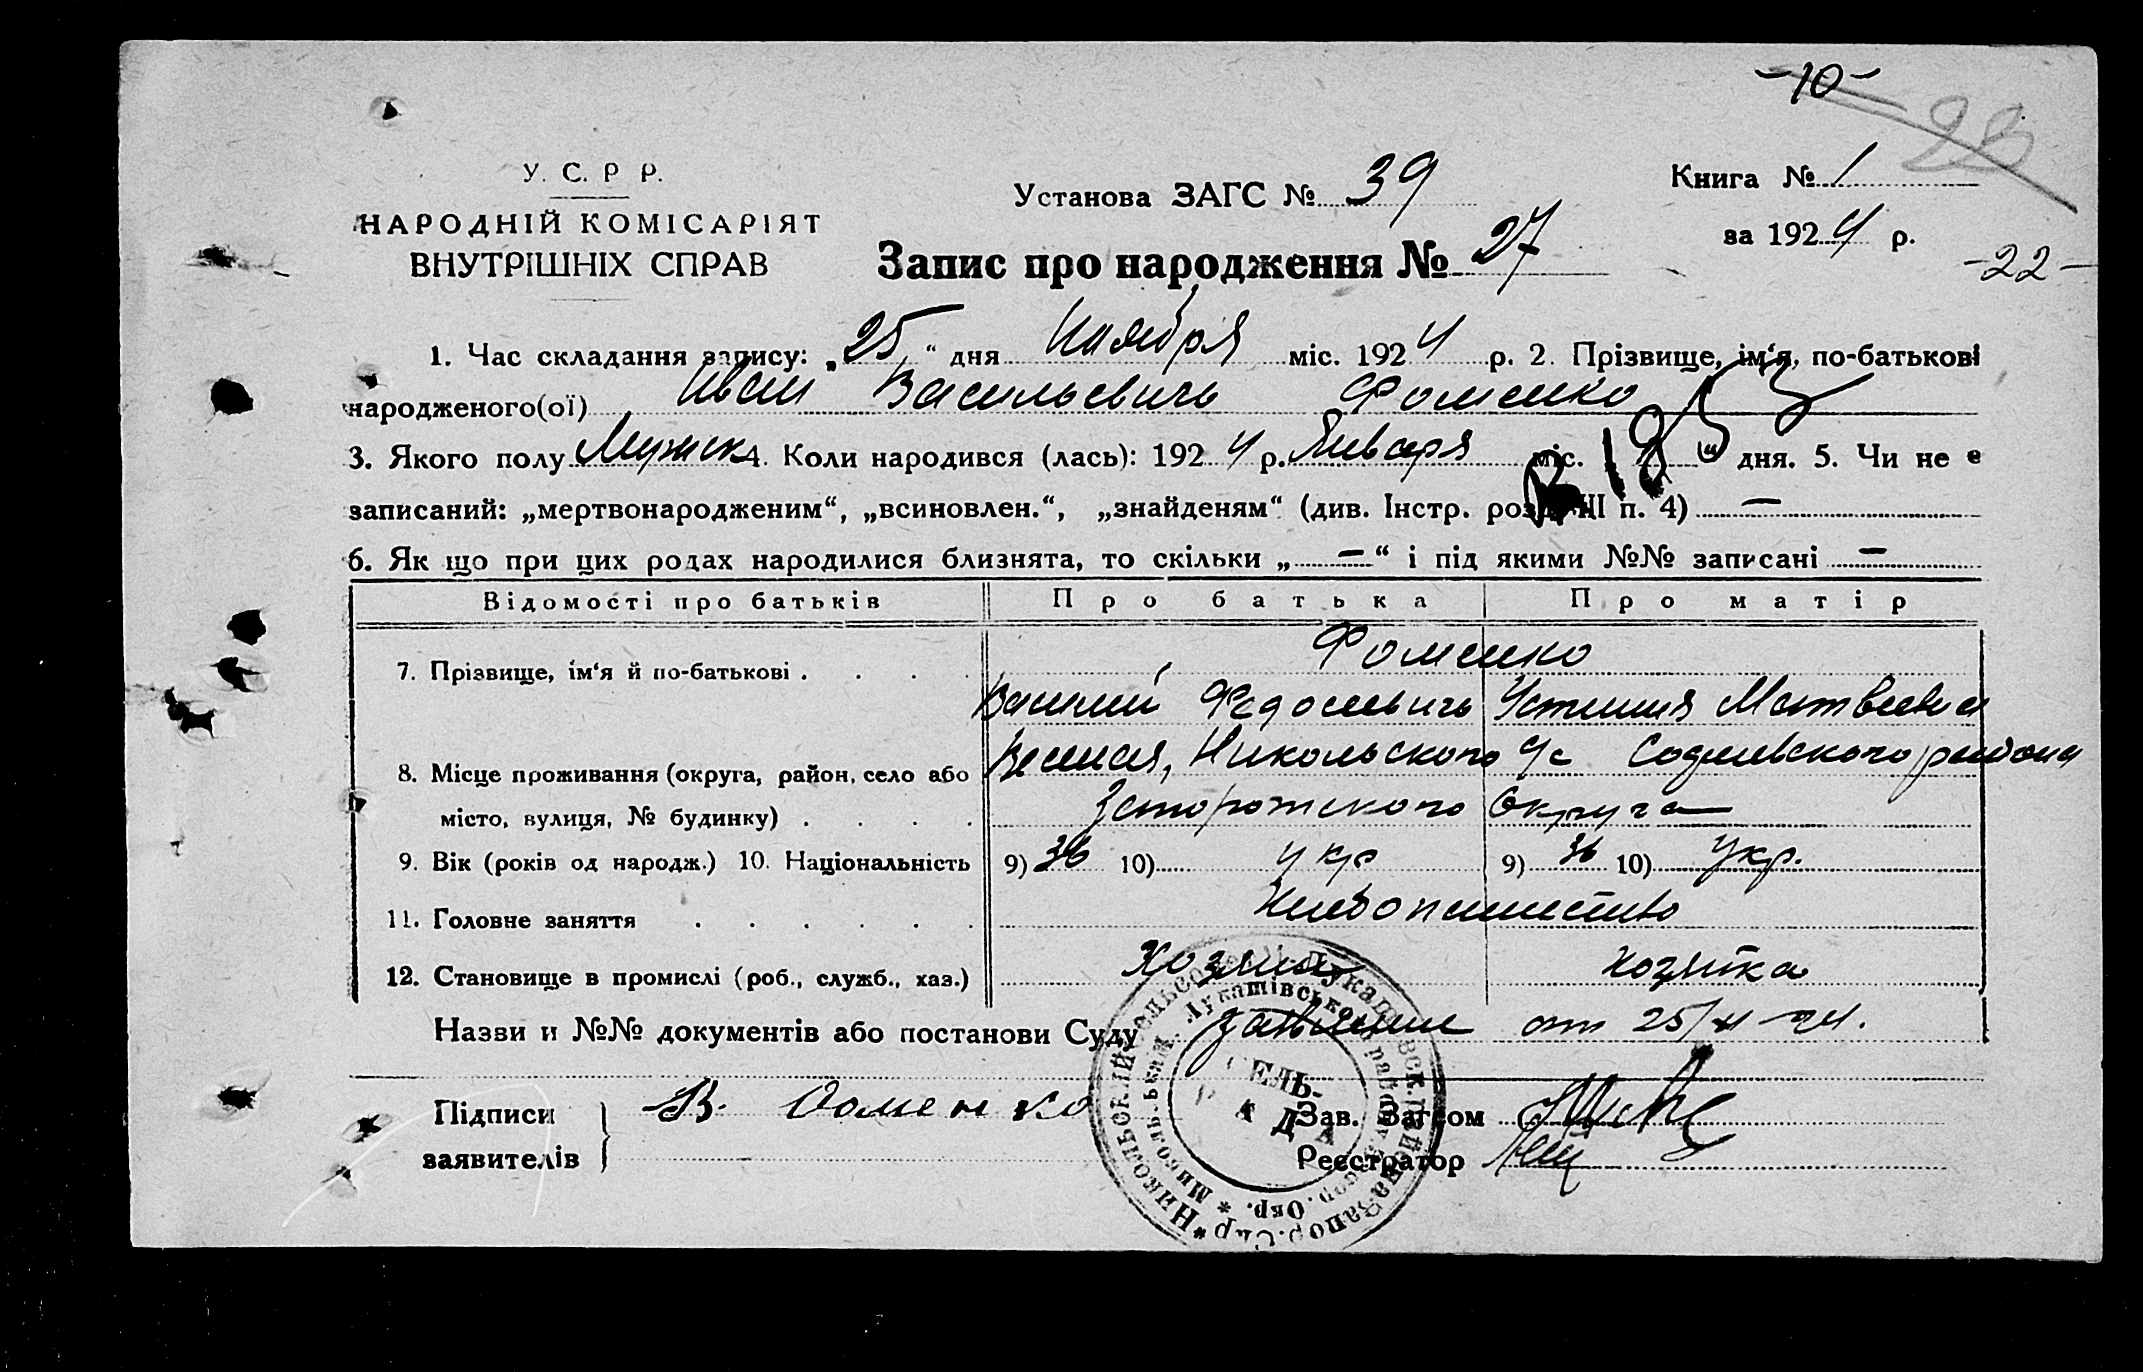 -10-
23
У. С. Р. Р.
НАРОДНІЙ КОМІСАРІЯТ
ВНУТРІШНІХ СПРАВ
Установа ЗАГС № 39
Книга № 1
за 1924 р.
-22-
Запис про народження № 27
1. Час складання запису: „25“ дня Ноября міс. 1924 р. 2. Прізвище, ім‘я, по-батькові
народженого(ої) Иван Васильевичь Фоменко
3. Якого полу Мужск 4. Коли народився (лась): 1924 р. Января міс. 18 дня. 5. Чи не є
записаний: „мертвонародженим“, „всиновлен.“, „знайденям“ (див. Інстр. розд. III п. 4) —
6. Як що при цих родах народилися близнята, то скільки „—“ і під якими №№ записані —
Відомості про батьків Про батька Про матір
7. Прізвище, ім‘я й по-батькові . . . . Фоменко
Василий Федосиевичь Устиния Матвеевна
8. Місце проживання (округа, район, село або Никольского с/с района
місто, вулиця, № будинку) . . . . Запорожского Округа
9. Вік (років од народж.) 10. Національність 9) 36 10) укр 9) 36 10) Укр.
11. Головне заняття . . . . . . Хлебопашество
12. Становище в промислі (роб., служб., хаз.) Хозяин хозяйка
Назви и №№ документів або постанови Суду заявление от 25/XI-24.
Підписи заявителів } В. Фоменко
Зав. Загсом
Реєстратор
СЕЛЬ.
РАДА